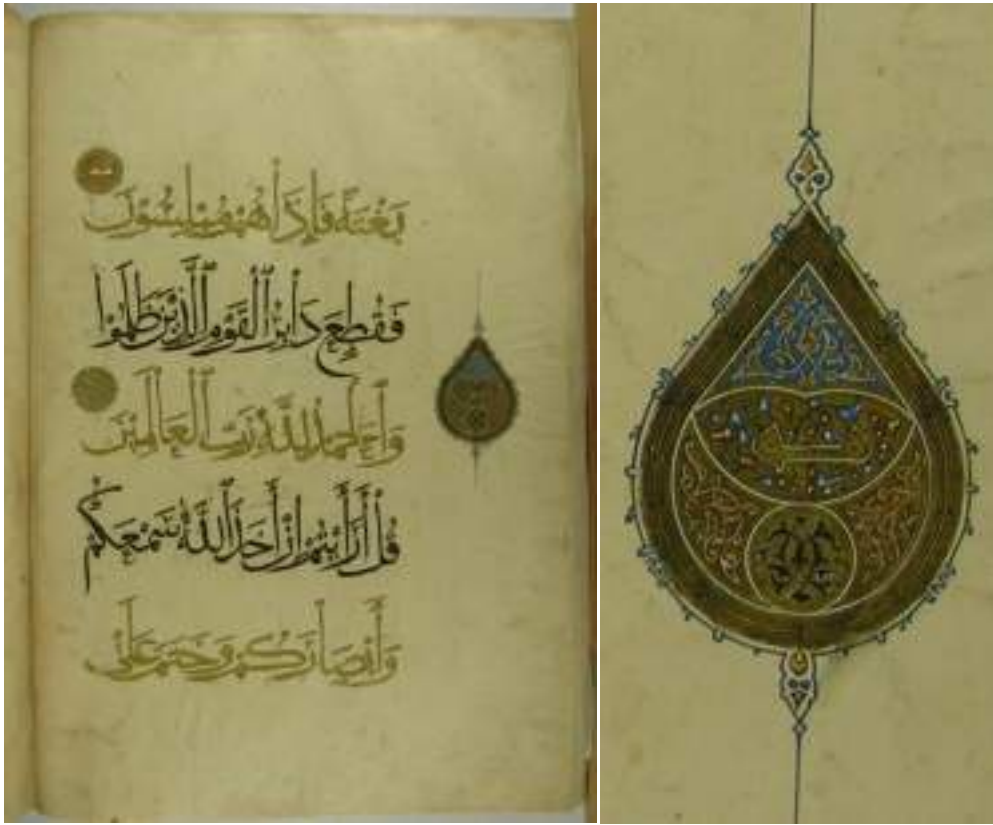 بَغْتَةً فَإِذَا هُمْ مُبْلِسُونَ
فَقُطِعَ دَابِرُ ٱلْقَوْمِ ٱلَّذِينَ ظَلَمُوا
وَٱلْحَمْدُ لِلَّهِ رَبِّ ٱلْعَالَمِينَ
قُلْ أَرَأَيْتُمْ إِنْ أَخَذَ ٱللَّهُ سَمْعَكُمْ
وَأَبْصَارَكُمْ وَخَتَمَ عَلَى